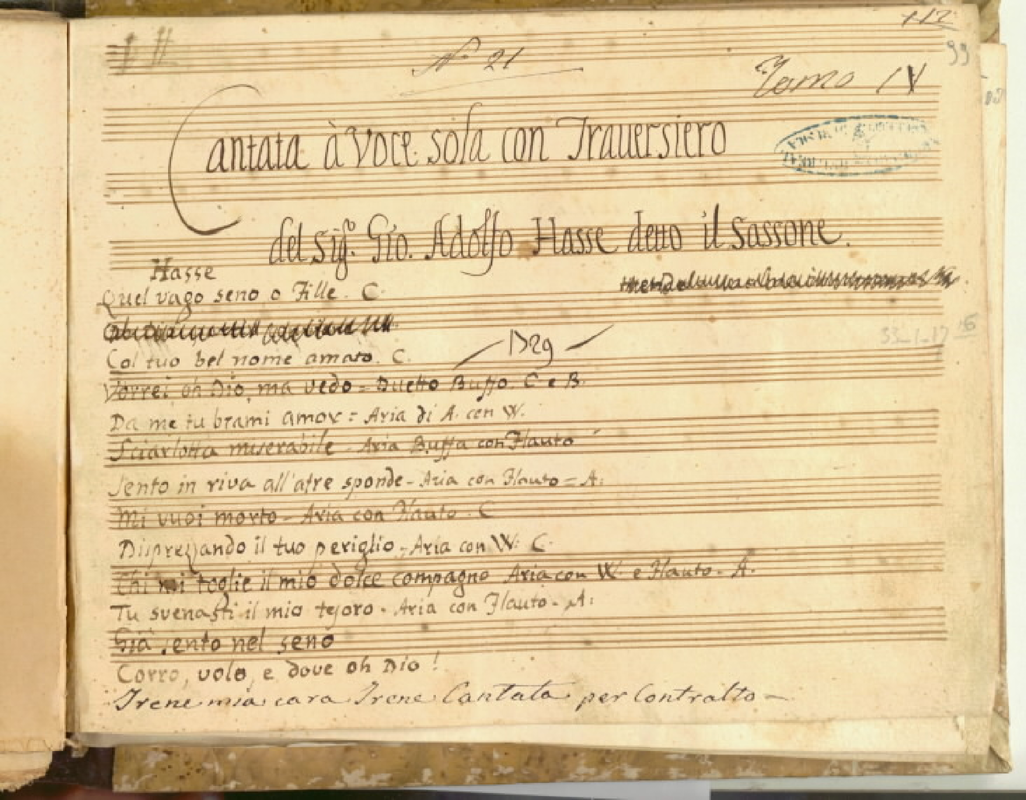 +12
99
Nº 21
Tomo IV
Cantata à Voce sola con Traversiero
del Sigʳ. Gio. Adolfo Hasse detto il Sassone.
Hasse
Quel vago seno o Fille. C.
Col tuo bel nome amato. C.
1729
Vorrei oh Dio, ma vedo = Duetto Buffo. C e B.
Da me tu brami amor = Aria di A. con W.
Sciarlotta miserabile - Aria Buffa con Flauto
Sento in riva all'atre sponde - Aria con Flauto = A.
Mi vuoi morto - Aria con Flauto. C
Disprezzando il tuo periglio - Aria con W. C.
Chi mi toglie il mio dolce compagno Aria con W. e Flauto - A.
Tu svenasti il mio tesoro - Aria con Flauto - A.
Già sento nel seno
Corro, volo, e dove oh Dio!
Irene mia cara Irene Cantata per Contralto -